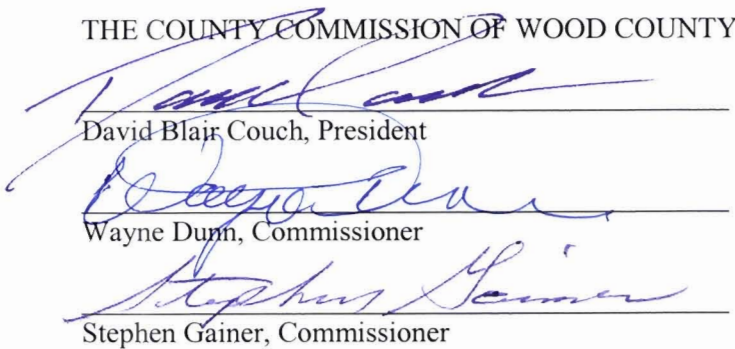 THE COUNTY COMMISSION OF WOOD COUNTY
David Blair Couch, President
Wayne Dunn, Commissioner
Stephen Gainer
Stephen Gainer, Commissioner